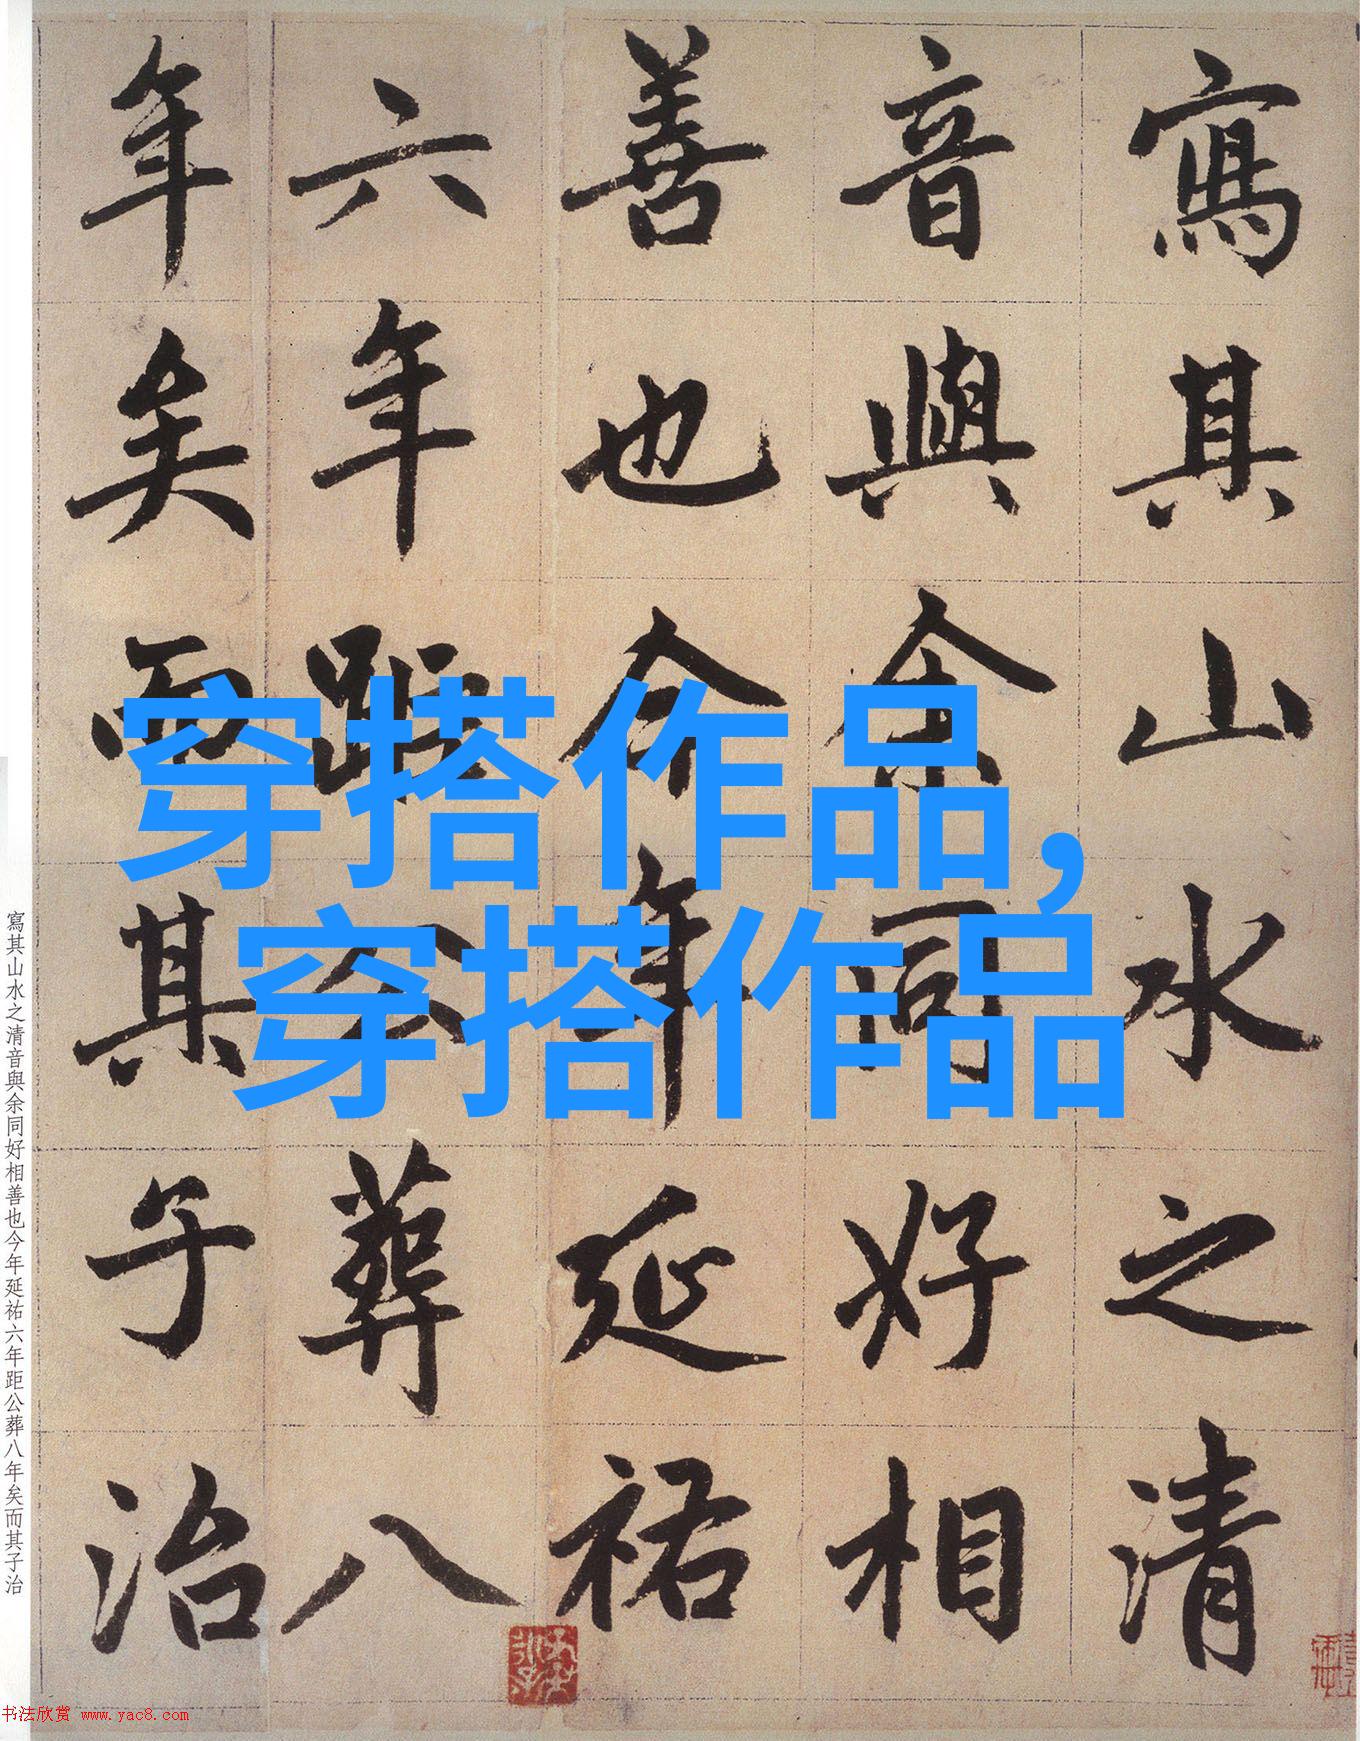 寫其山水之清
音與余同好相
善也今年延祐
六年距公葬八
年矣而其子治
穿搭作品,
穿搭作品
寫其山水之清音與余同好相善也今年延祐六年距公葬八年矣而其子治
书法欣赏 www.yac8.com